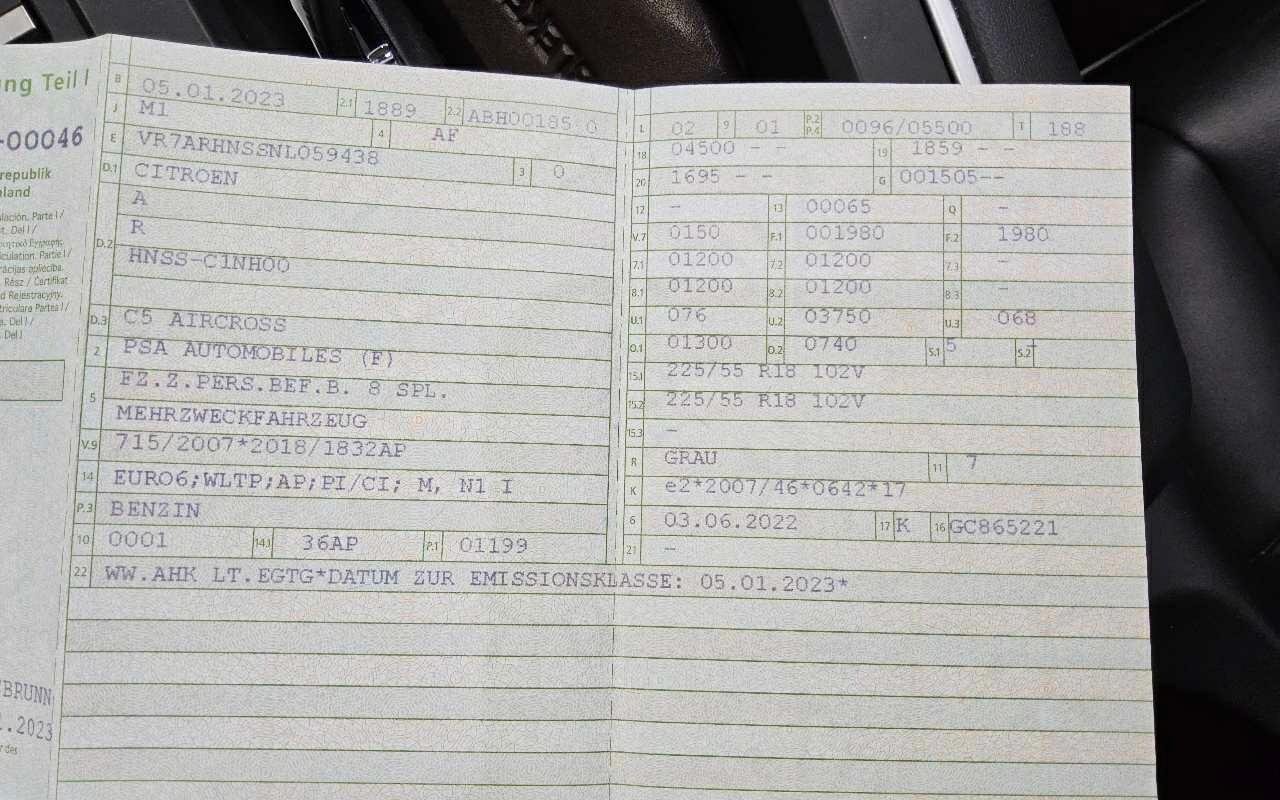 ng Teil I
-00046
republik
hland
B 05.01.2023 2.1 1889 2.2 ABH00185 0
J M1 4 AF
E VR7ARHNSSNL059438
D.1 CITROEN 3 0
D.2 A
R
HNSS-C1NH00
D.3 C5 AIRCROSS
2 PSA AUTOMOBILES (F)
5 FZ.Z.PERS.BEF.B. 8 SPL.
MEHRZWECKFAHRZEUG
V.9 715/2007*2018/1832AP
14 EURO6;WLTP;AP;PI/CI; M, N1 I
P.3 BENZIN
10 0001 14.1 36AP P.1 01199
22 WW.AHK LT.EGTG*DATUM ZUR EMISSIONSKLASSE: 05.01.2023*
L 02 9 01 P.2 P.4 0096/05500 T 188
18 04500 - - 19 1859 - -
20 1695 - - G 001505--
12 - 13 00065 Q -
V.7 0150 F.1 001980 F.2 1980
7.1 01200 7.2 01200 7.3 -
8.1 01200 8.2 01200 8.3 -
U.1 076 U.2 03750 U.3 068
O.1 01300 O.2 0740 S.1 5 S.2 -
15.1 225/55 R18 102V
15.2 225/55 R18 102V
15.3 -
R GRAU 11 7
K e2*2007/46*0642*17
6 03.06.2022 17 K 16 GC865221
21 -
BRUNN
.2023